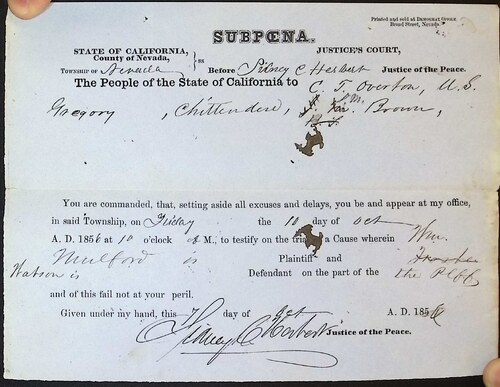 Printed and sold at DEMOCRAT OFFICE
Broad Street, Nevada.
SUBPŒNA.
STATE OF CALIFORNIA,
County of Nevada, } ss
JUSTICE'S COURT,
TOWNSHIP OF Nevada Before Sidney C Herbert Justice of the Peace.
The People of the State of California to C. T. Overton, U. S.
Gregory, Chittenden, J. M. Brown,
You are commanded, that, setting aside all excuses and delays, you be and appear at my office,
in said Township, on Friday the 10 day of Oct
A. D. 1856 at 10 o'clock A M., to testify on the trial of a Cause wherein Wm.
Mulford is Plaintiff and
Watson is Defendant on the part of the the Plff
and of this fail not at your peril.
Given under my hand, this 7 day of Oct A. D. 1856
Sidney C Herbert Justice of the Peace.